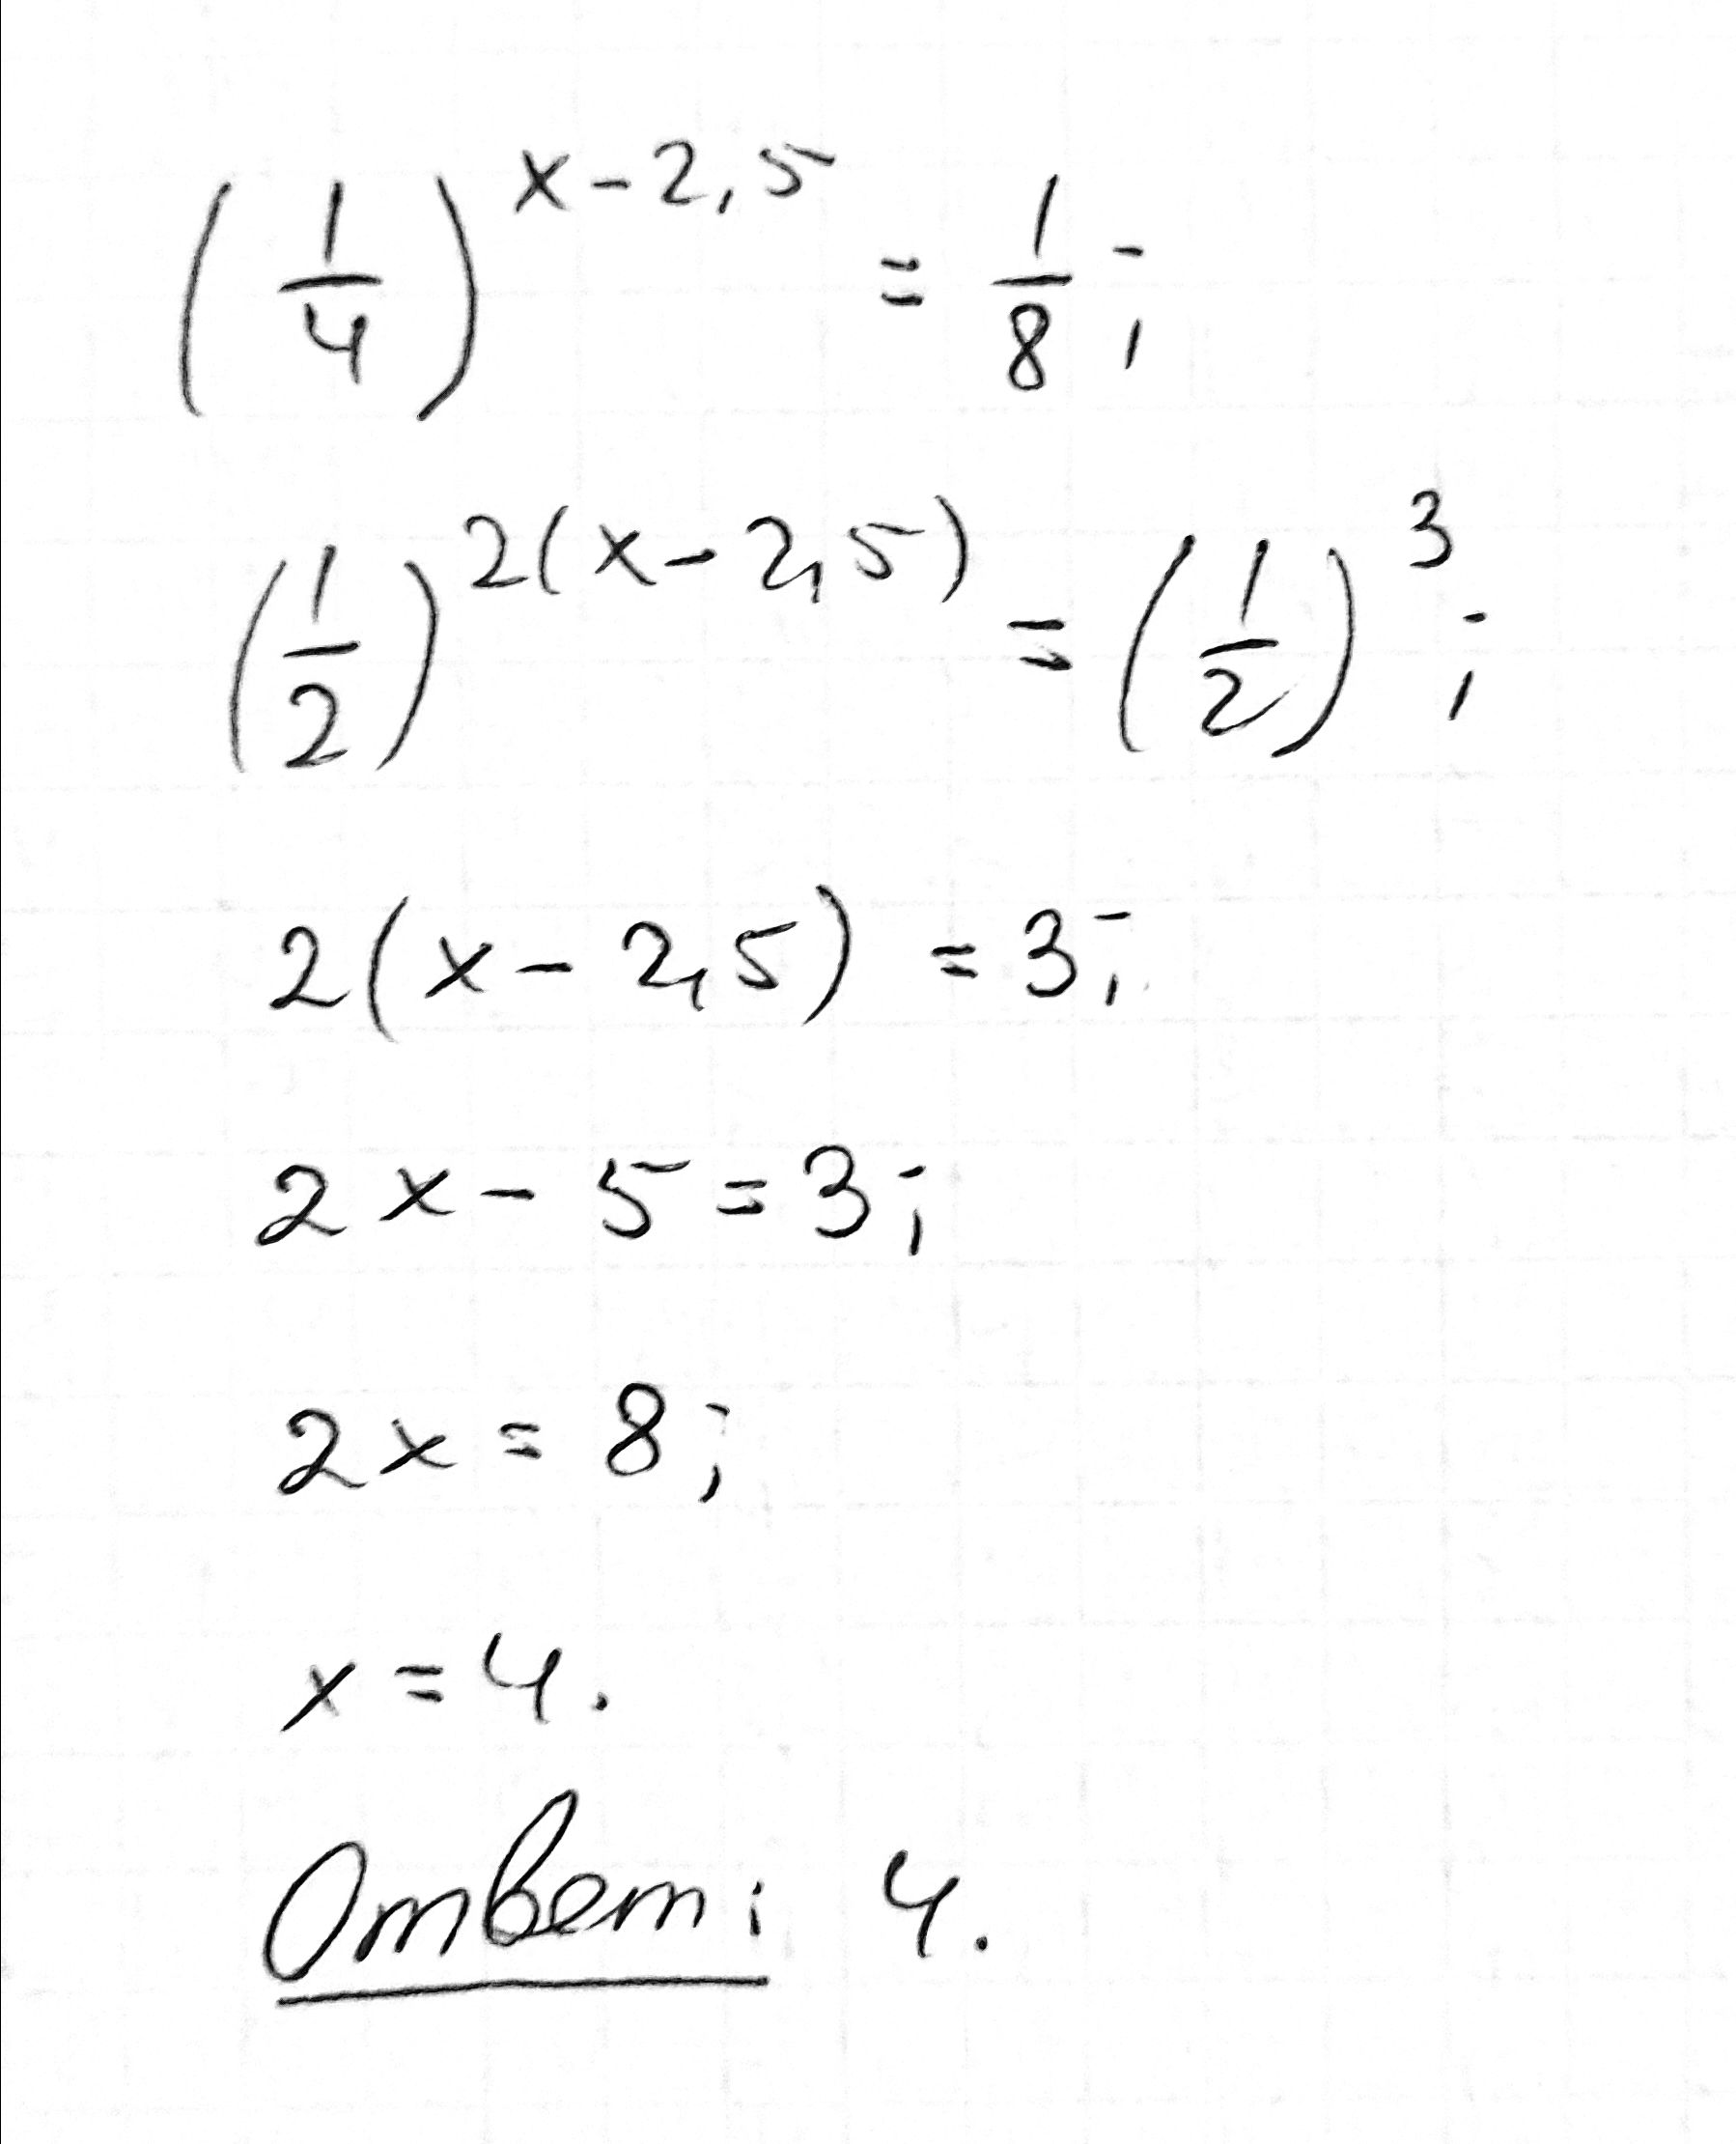 (1/4)^(x-2,5) = 1/8;
(1/2)^(2(x-2,5)) = (1/2)^3;
2(x-2,5) = 3;
2x-5=3;
2x=8;
x=4.
Ответ: 4.